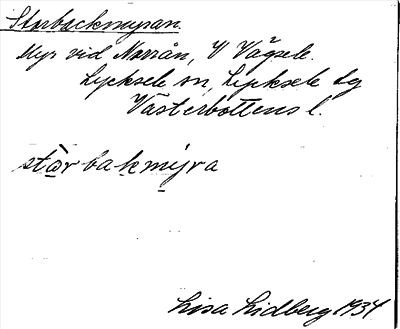 Storbackmyran.
Myr vid Norrån, V Vägsele.
Lycksele sn, Lycksele lg
Västerbottens l.
stàrbakmýra
Lisa Lidberg 1934